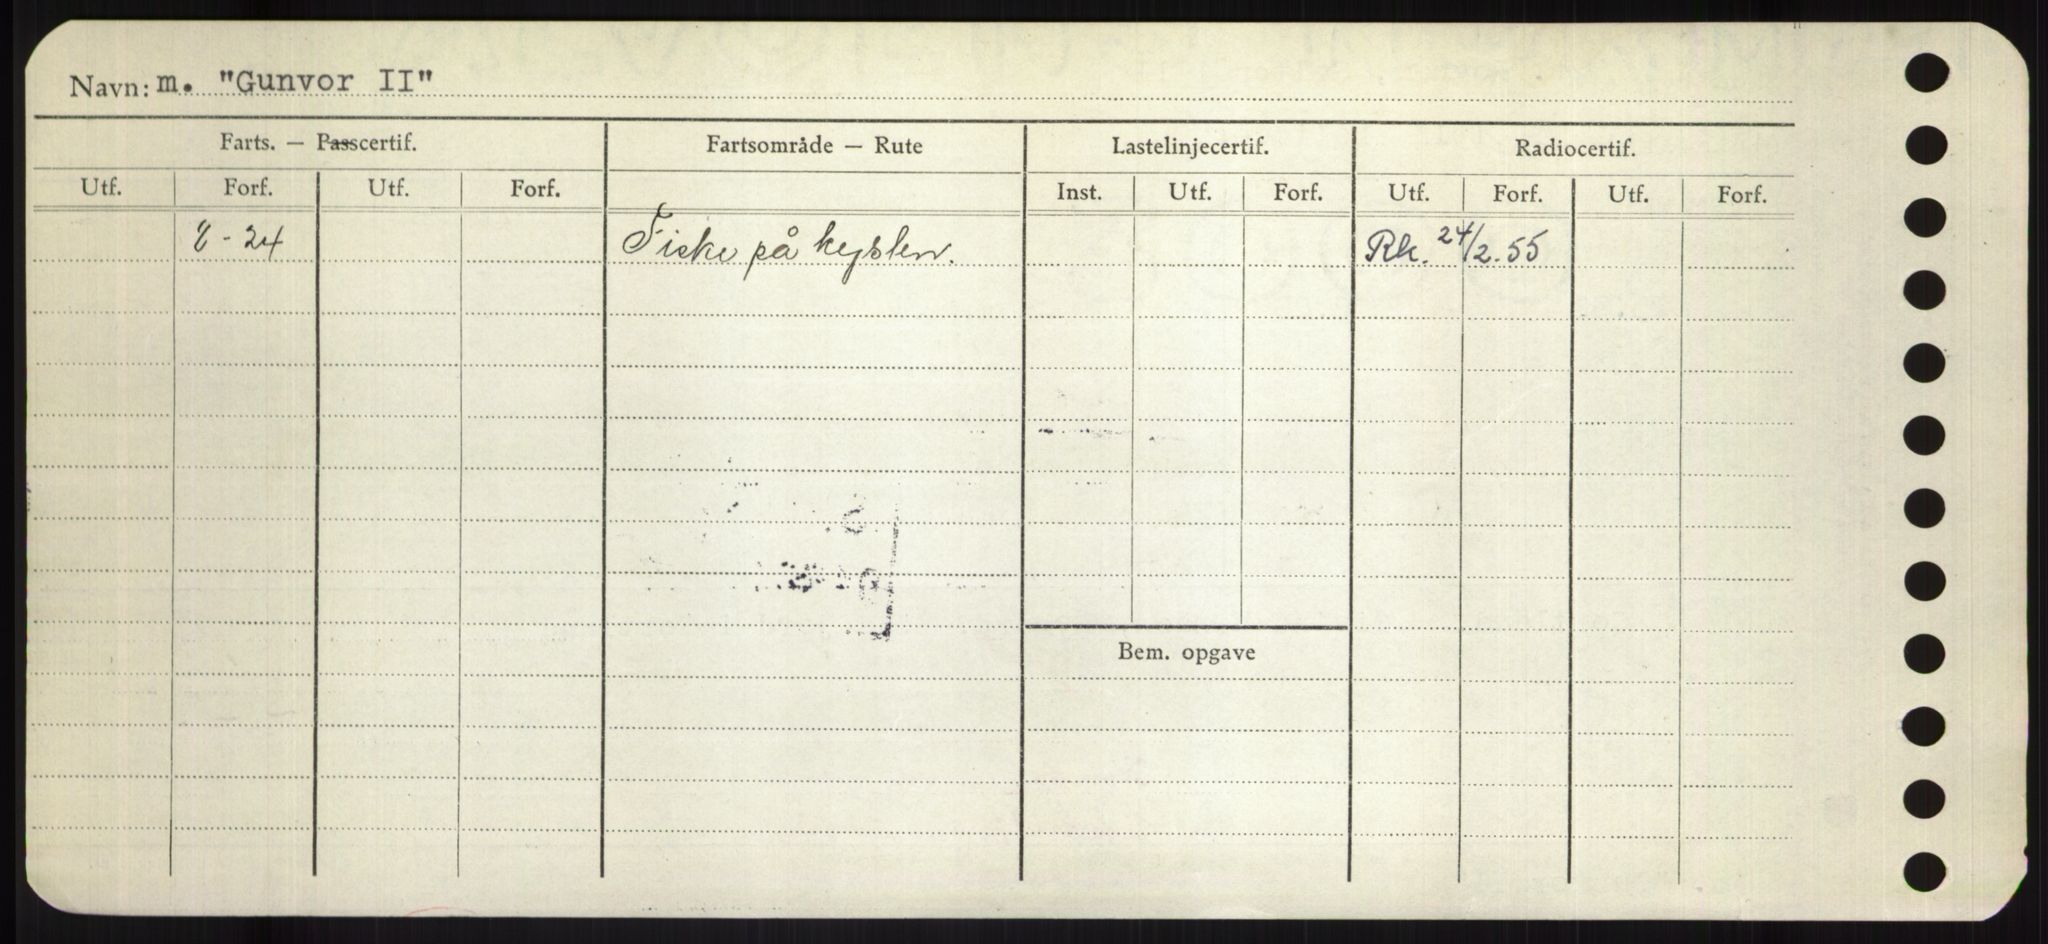 Navn: m. "Gunvor II"
Farts. — Passcertif. Fartsområde — Rute Lastelinjecertif. Radiocertif.
Utf. Forf. Utf. Forf. Inst. Utf. Forf. Utf. Forf. Utf. Forf.
8-24 Fiske på kysten. Rk. 24/2.55
Bem. opgave